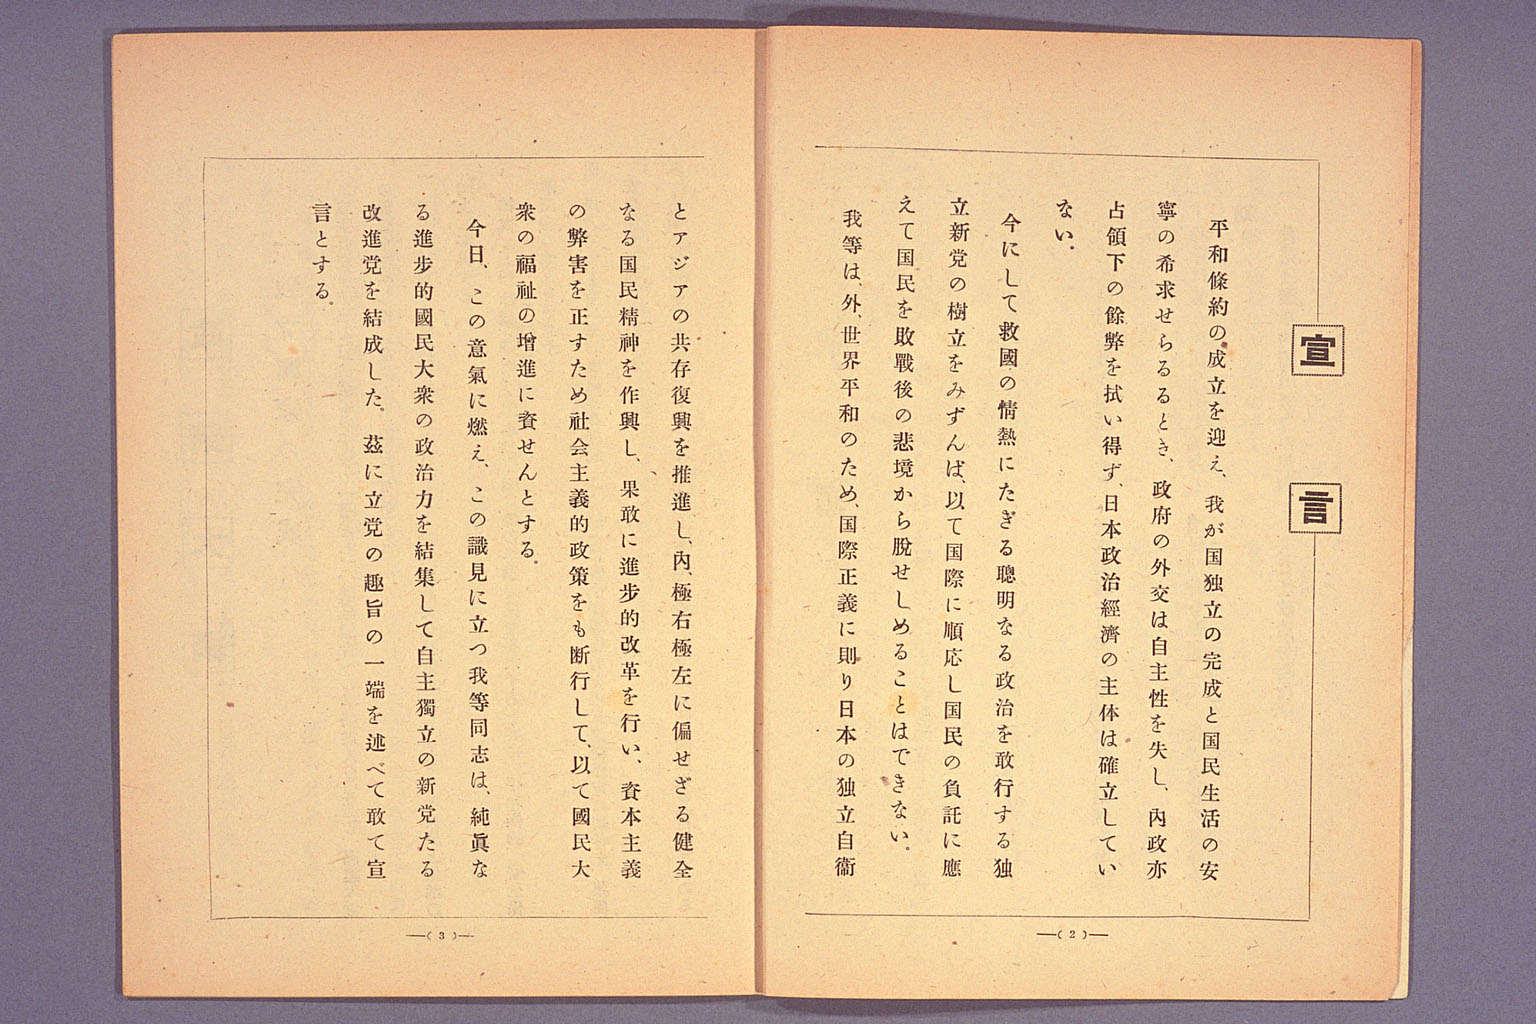 宣言
平和條約の成立を迎え、我が国独立の完成と国民生活の安
寧の希求せらるるとき、政府の外交は自主性を失し、內政亦
占領下の餘弊を拭い得ず、日本政治經濟の主体は確立してい
ない。
今にして救國の情熱にたぎる聰明なる政治を敢行する独
立新党の樹立をみずんば、以て国際に順応し国民の負託に應
えて国民を敗戰後の悲境から脫せしめることはできない。
我等は、外、世界平和のため、国際正義に則り日本の独立自衞
(2)
とアジアの共存復興を推進し、內、極右極左に偏せざる健全
なる国民精神を作興し、果敢に進步的改革を行い、資本主義
の弊害を正すため社会主義的政策をも断行して、以て國民大
衆の福祉の增進に資せんとする。
今日、この意氣に燃え、この識見に立つ我等同志は、純眞な
る進步的國民大衆の政治力を結集して自主獨立の新党たる
改進党を結成した。茲に立党の趣旨の一端を述べて敢て宣
言とする。
(3)